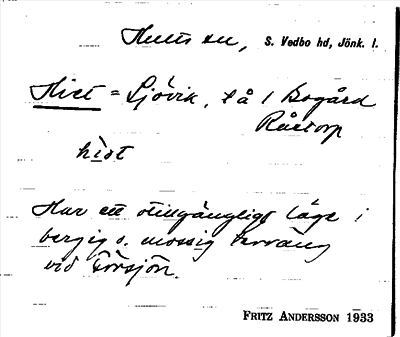 Hults sn, S. Vedbo hd, Jönk. l.
Hist = Sjövik, lå / Bogård
Råstorp
hist
Har ett otillgängligt läge i
bergig o. mossig terräng
vid Försjön.
FRITZ ANDERSSON 1933